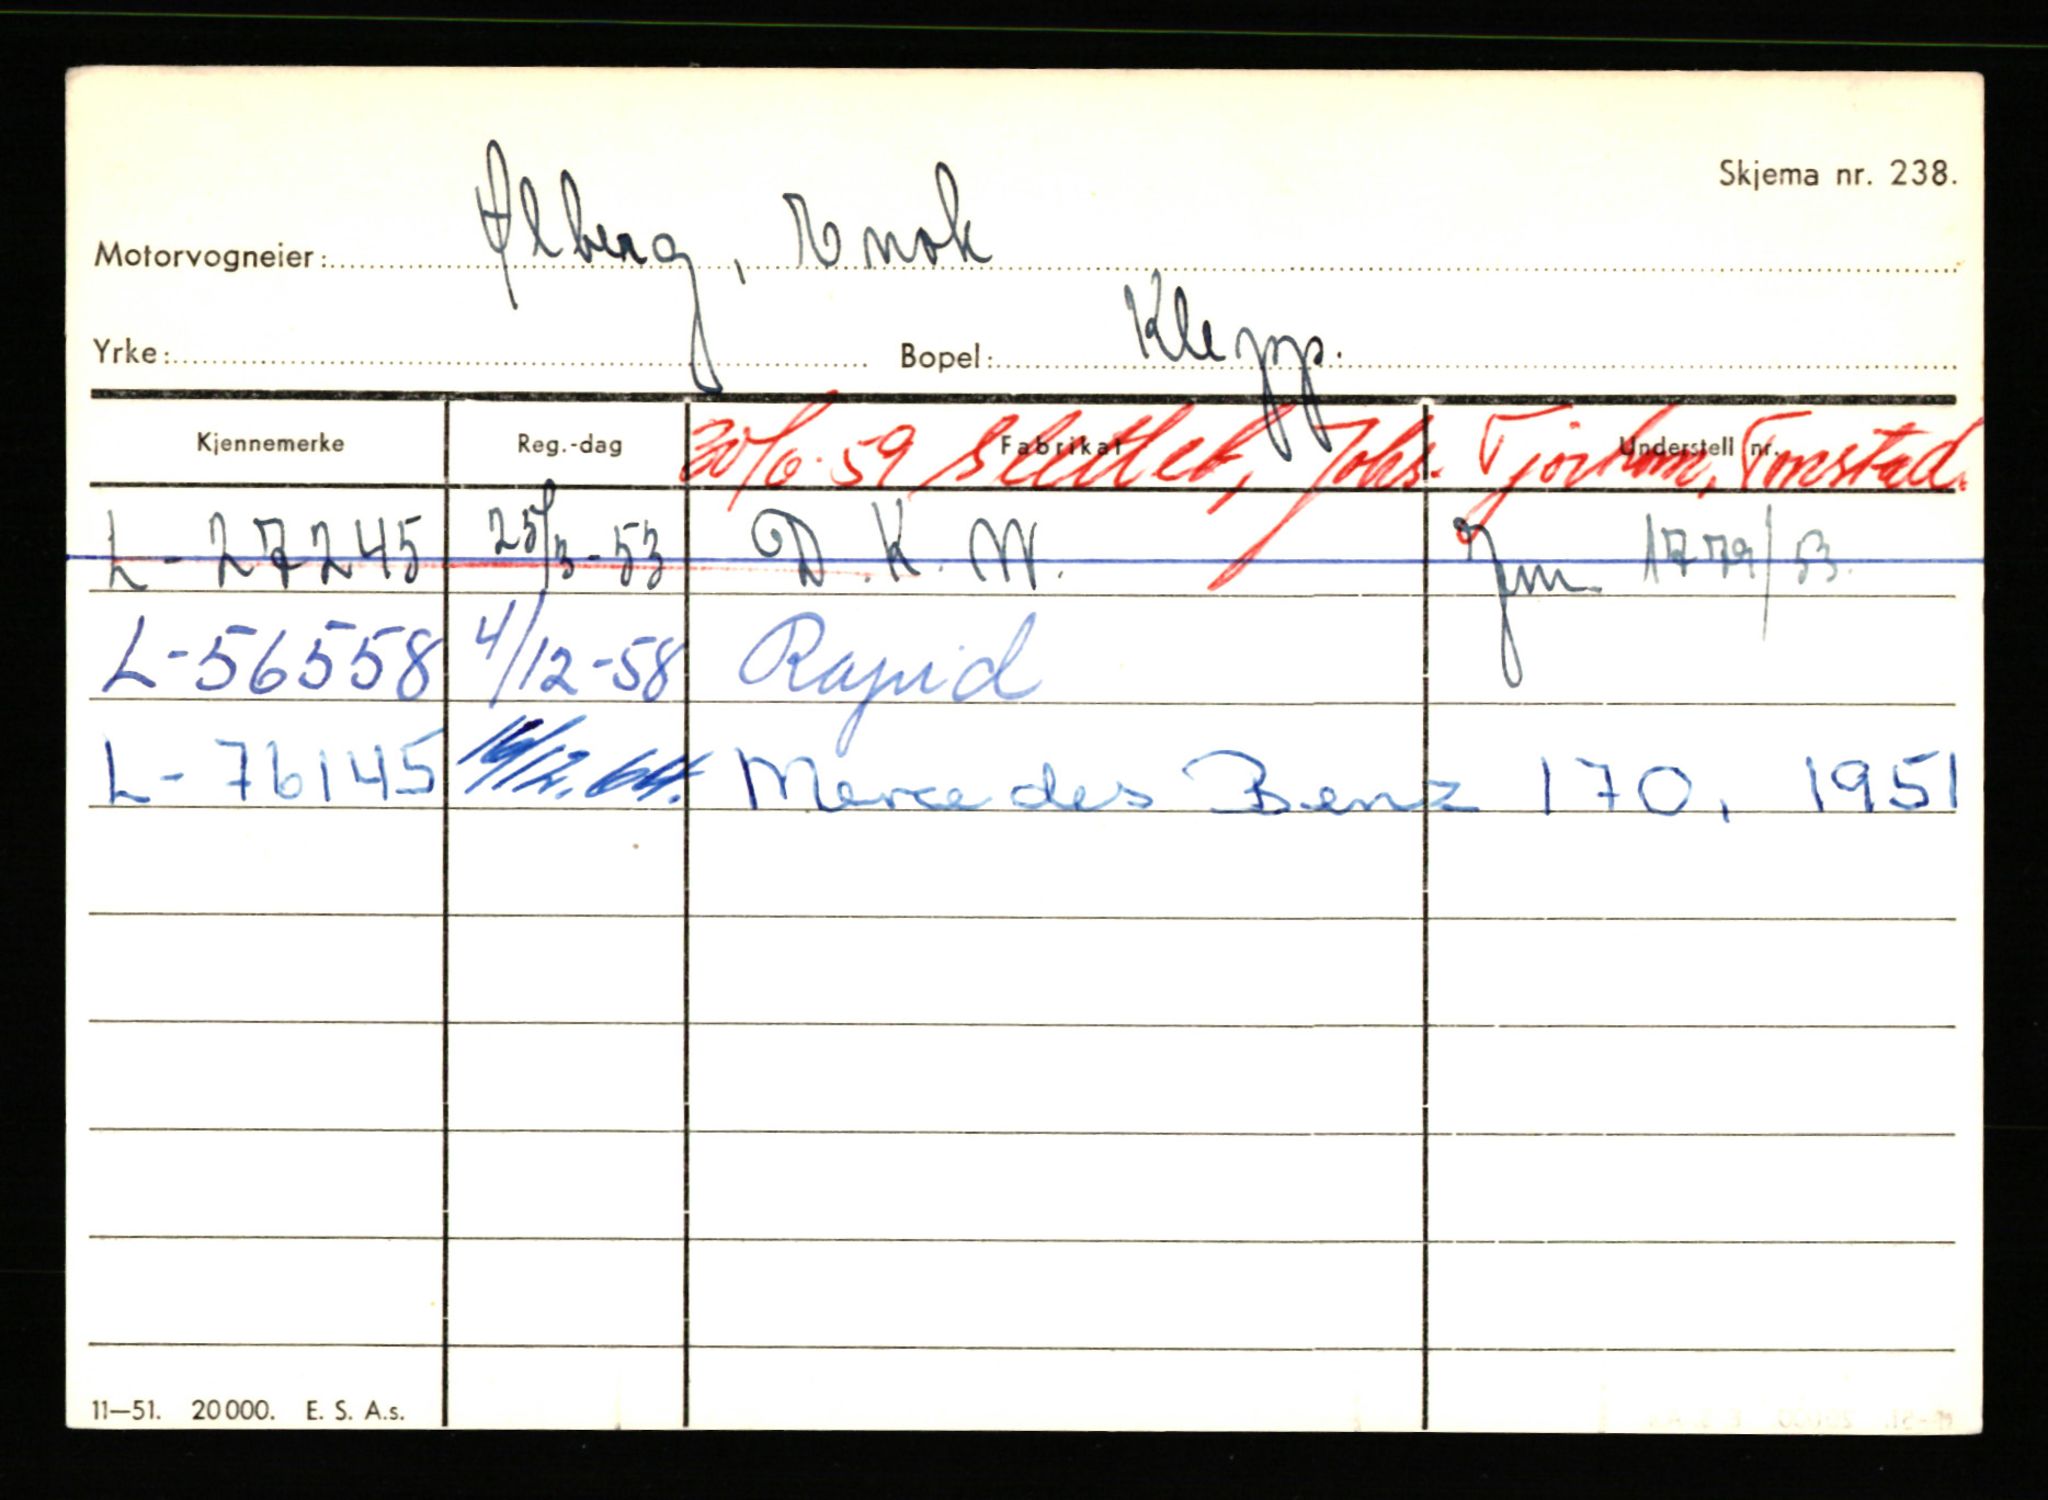 Skjema nr. 238.
Motorvogneier: Ølberg, Enok
Yrke: Bopel: Klepp.
Kjennemerke Reg.-dag Fabrikat Understell nr.
30/6-59 slettet, Johs. Tjørhom, Tonstad.
L-27245 25/3-53 D.K.W. Jm 1779/53.
L-56558 4/12-58 Rapid
L-76145 16/12.64. Mercedes Benz 170, 1951
11—51. 20000. E. S. A.s.